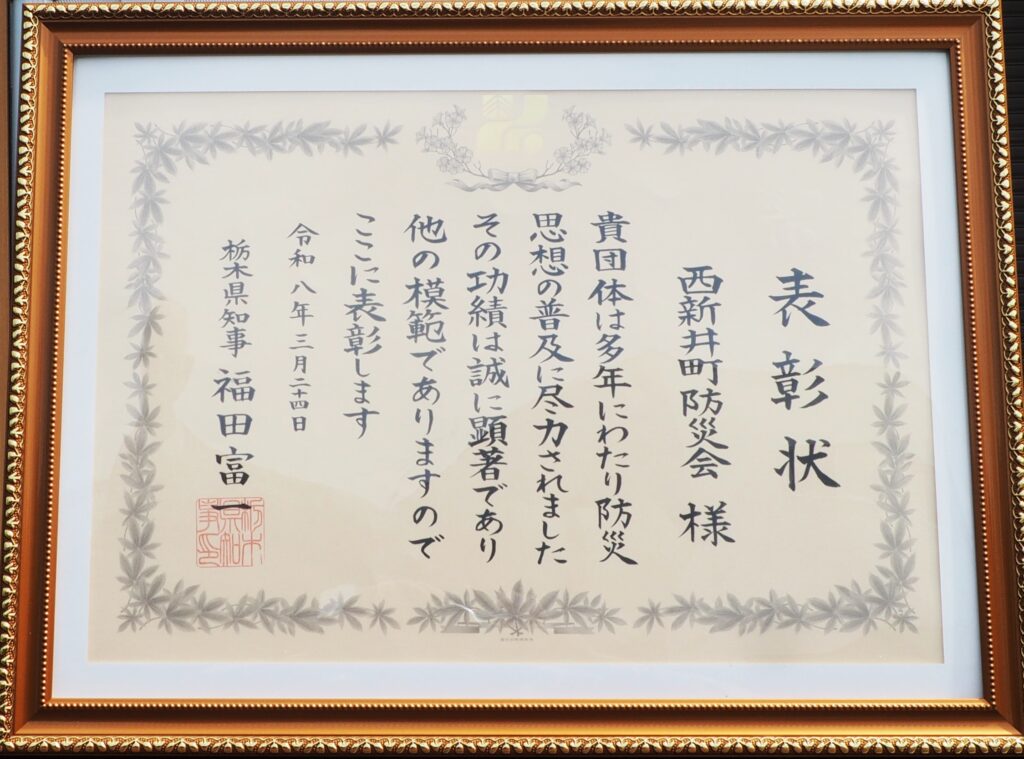 表彰状
西新井町防災会 様
貴団体は多年にわたり防災
思想の普及に尽力されました
その功績は誠に顕著であり
他の模範でありますので
ここに表彰します
令和八年三月二十四日
栃木県知事 福田富一
栃木県知事印